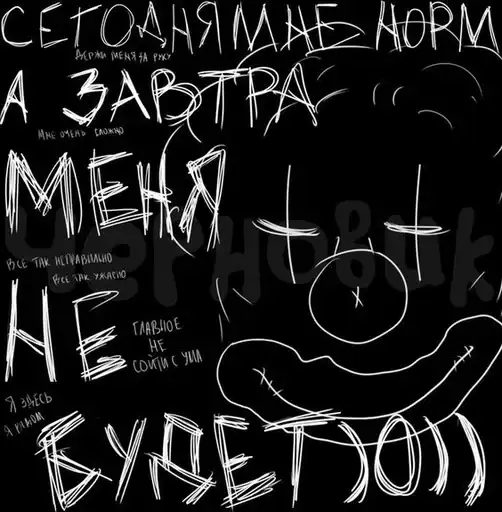 СЕГОДНЯ МНЕ НОРМ
ДЕРЖИ МЕНЯ ЗА РУКУ
А ЗАВТРА
МНЕ ОЧЕНЬ СЛОЖНО
МЕНЯ
Черновик
ВСЕ ТАК НЕПРАВИЛЬНО
ВСЕ ТАК УЖАСНО
НЕ
ГЛАВНОЕ
НЕ
СОЙТИ С УМА
Я ЗДЕСЬ
А
БУДЕТ)0))